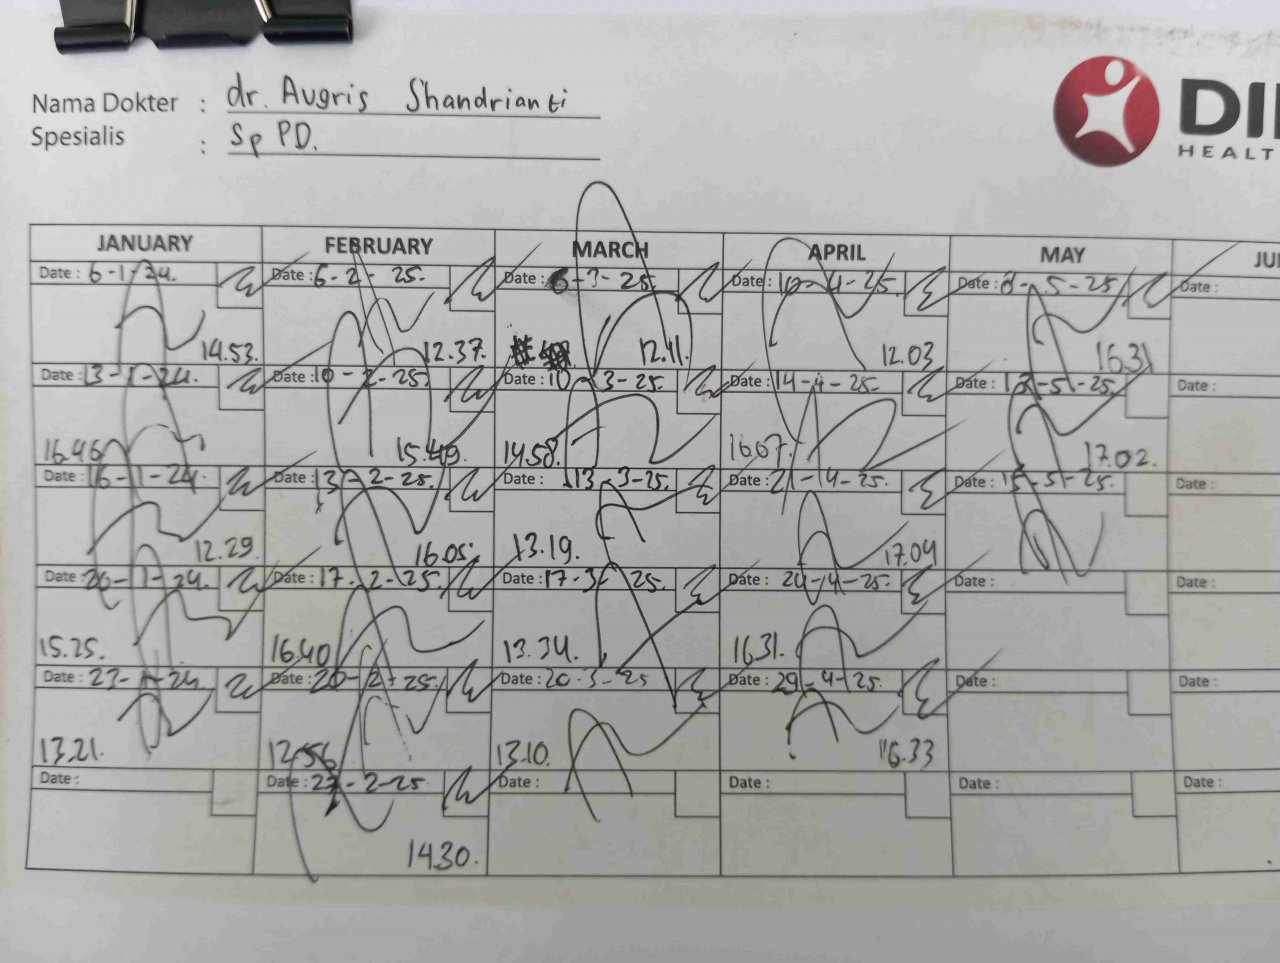 Nama Dokter : dr. Augris Shandrianti
Spesialis : Sp PD.
DI
HEALT
JANUARY FEBRUARY MARCH APRIL MAY JU
Date : 6-1-24. Date : 6-2-25. Date : 6-3-25. Date : 10-4-25. Date : -5-25 Date :
14.53. 12.37. 12.11. 12.03 16.31
Date : 13-1-24. Date : 10-2-25. Date : 10-3-25. Date : 14-4-25. Date : -5-25. Date :
16.46 15.49. 14.58. 16.07. 17.02.
Date : 16-1-24. Date : 13-2-25. Date : 13-3-25. Date : 21-4-25. Date : 15-5-25. Date :
12.29. 16.05. 13.19. 17.04
Date : 20-1-24. Date : 17-2-25. Date : 17-3-25. Date : 24-4-25. Date : Date :
15.25. 16.40 13.34. 16.31.
Date : 23-1-24. Date : 20-2-25. Date : 20-3-25 Date : 29-4-25. Date : Date :
13.21. 12.56 13.10. 16.33
Date : Date : 27-2-25. Date : Date : Date : Date :
14.30.